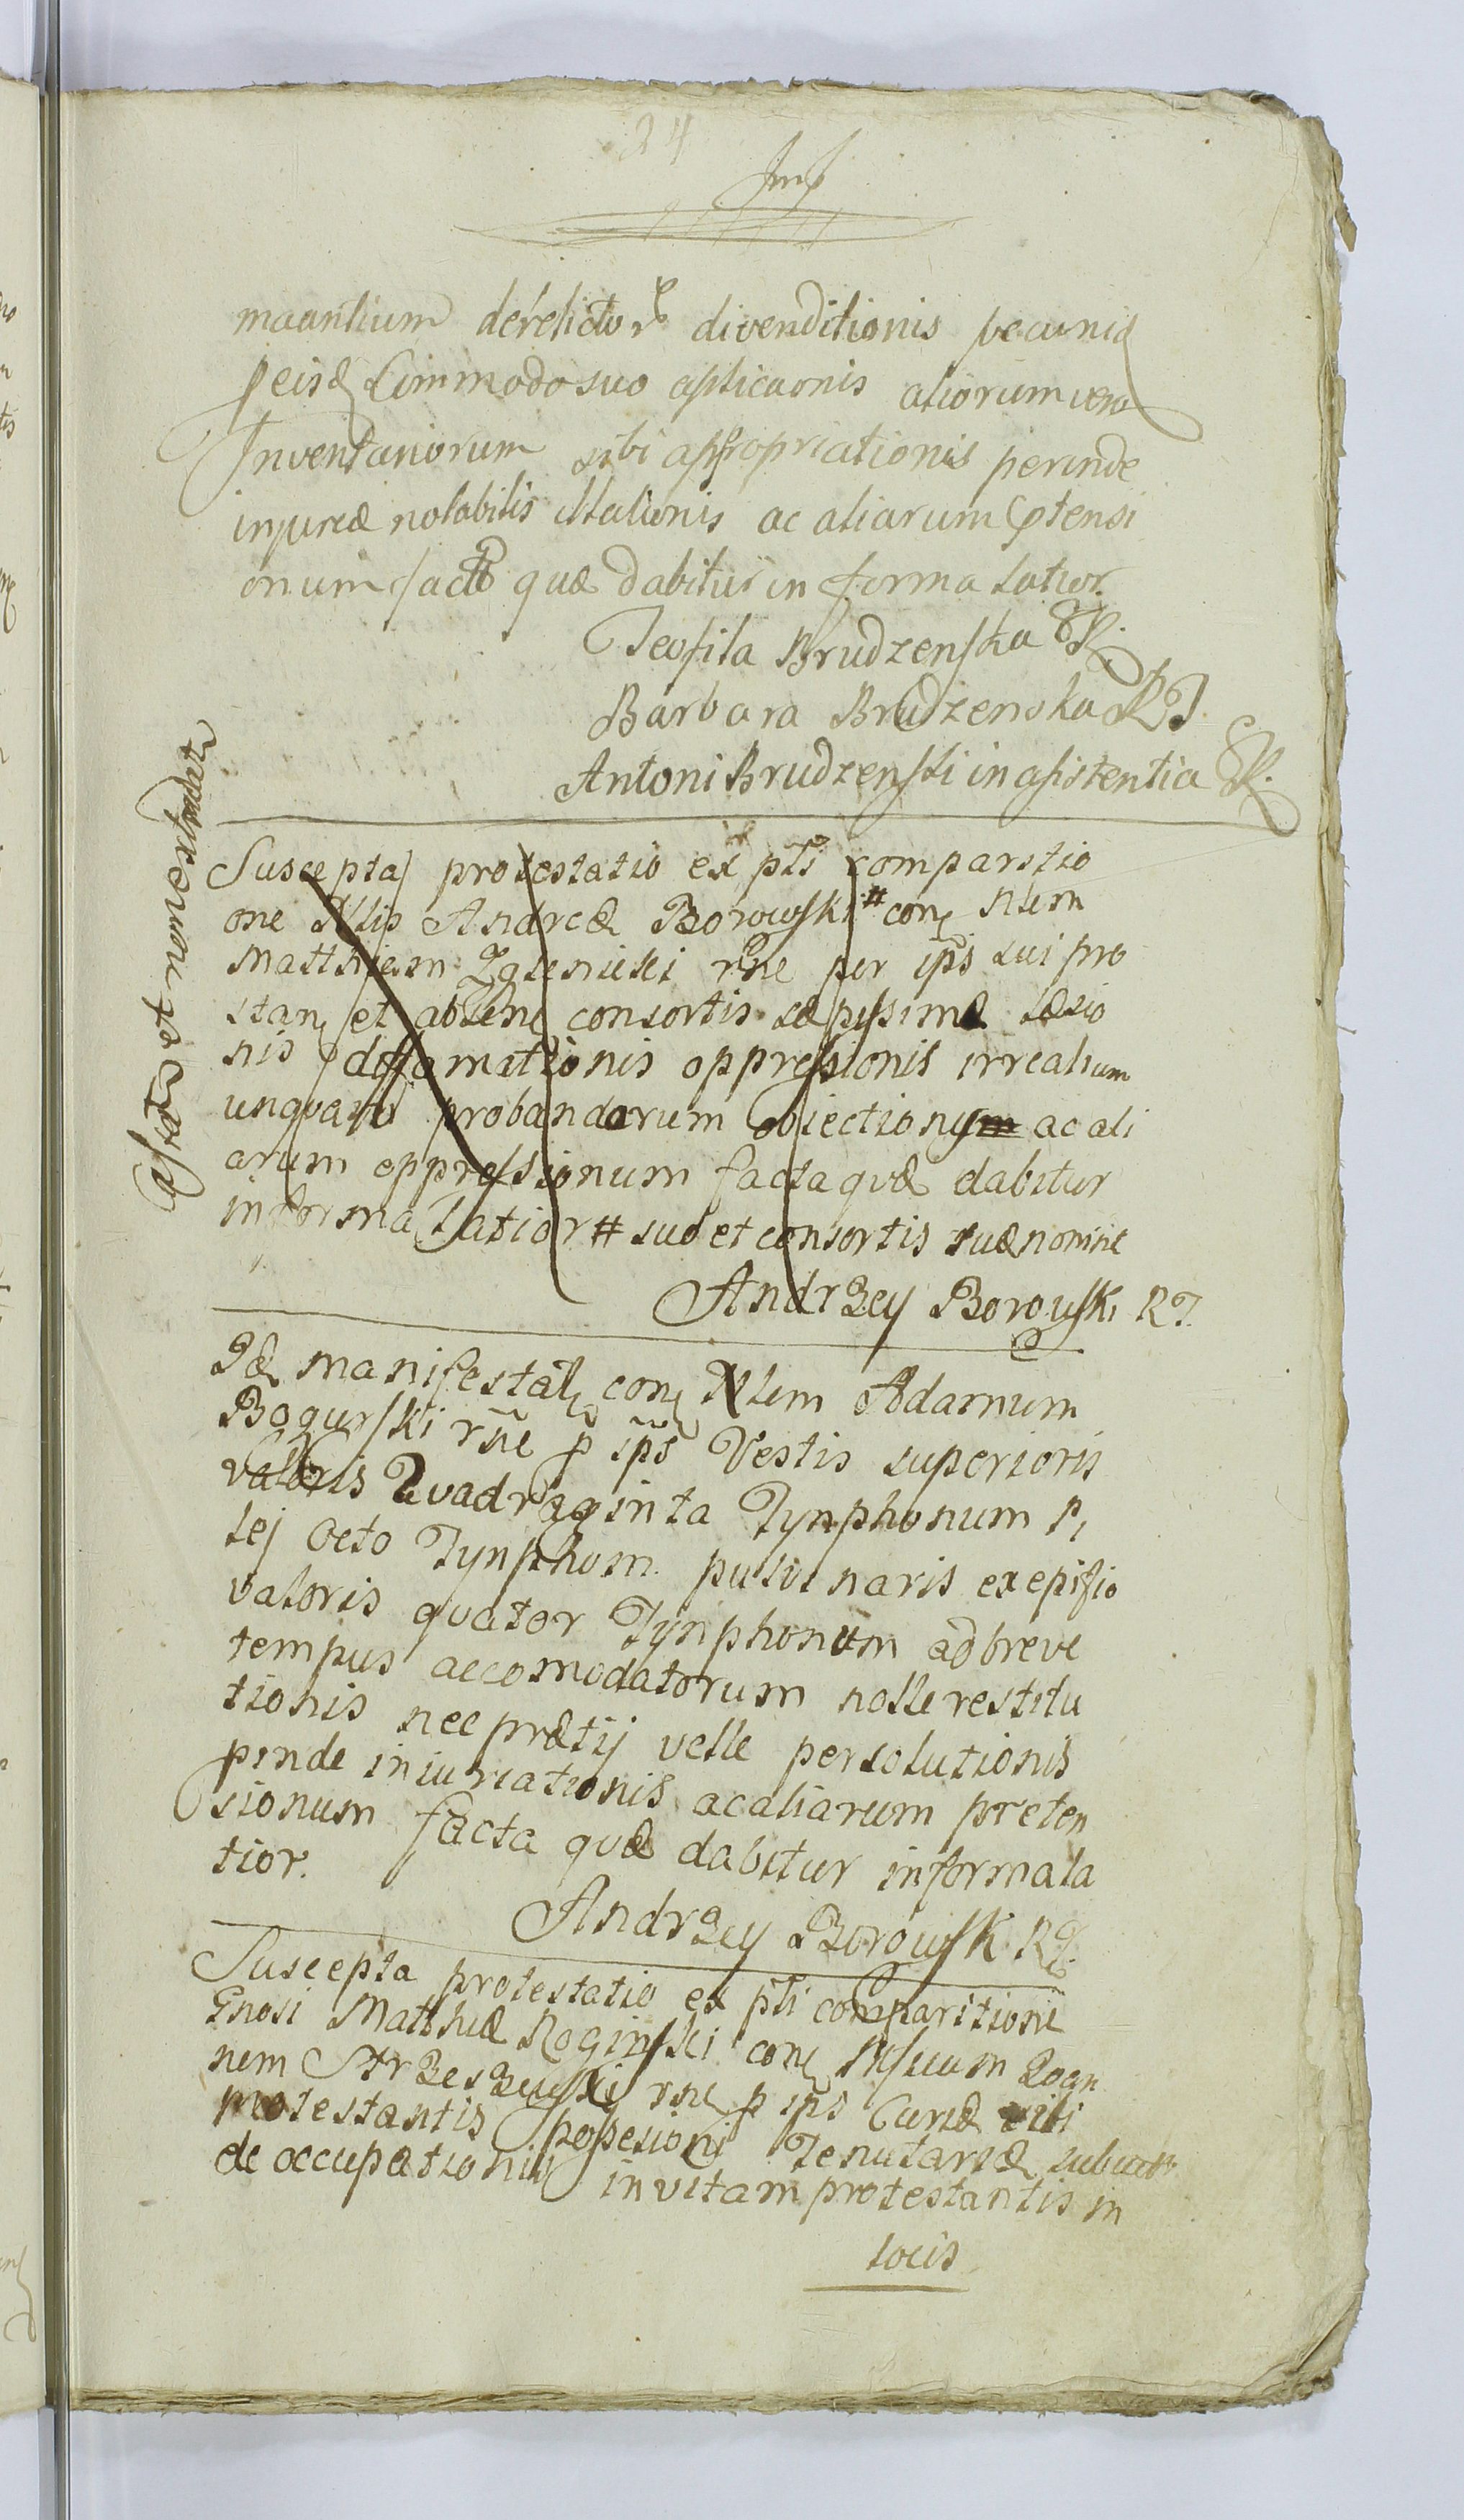 24
maantium derelictor divenditionis pecuniæ
p eisq Commodo suo aplicaonis aliorum vero
Inventariorum sibi appropriationis perinde
injuriæ notabilis illationis ac aliarum ptensi
onum facta quæ dabitur in forma latior.
Teofila Brudzenska
Barbara Brudzenska RT
Antoni Brudzenski in assistentia
Cassata est non extradat
Suscepta protestatio ex pti comparitio
one Nlis Andreæ Borowski # con Nlem
Matthiam rñe per ips sui pro
stan et absen consortis sæpissimæ læsio
nis deffamationis oppressionis irrealium
unquam probandarum Obiectionum ac ali
arum oppressionum facta quæ dabitur
in forma latior # suo et consortis suæ nomine
Andrzey Borowski RT.
Id manifestat con Nlem Adamum
Bogurski rñe p ips Vestis superioris
valoris Quadraginta Tynphonum Pi
lej Octo Tynphom. pulvinaris
valoris quator Tynphonum ad breve
tempus accomodatorum nolle restitu
tionis nec prætij velle persolutionis
pinde iniuriationis ac aliarum preten
sionum facta quæ dabitur in forma la
tior.
Andrzey Borowsk RT.
Suscepta protestatio ex pti comparitione
Gnosi Matthiæ Roginski con Nsuum Ioan
nem Strzeszewski rñe p ips Curiæ sibi
protestantis possesioni Tenutariæ
de occupationis invitam protestantis in
locis